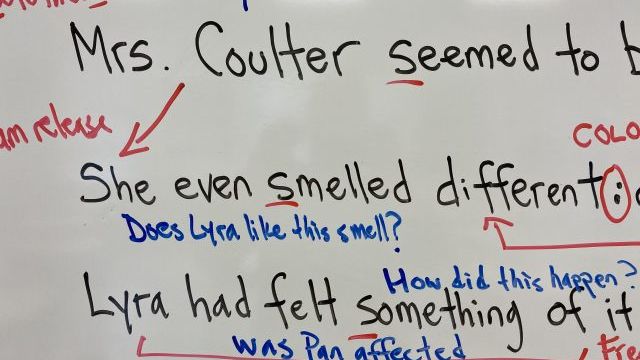 Mrs. Coulter seemed to b
am release
COLO
She even smelled different:
Does Lyra like this smell?
How did this happen?
Lyra had felt something of it
was Pan affected
Fre